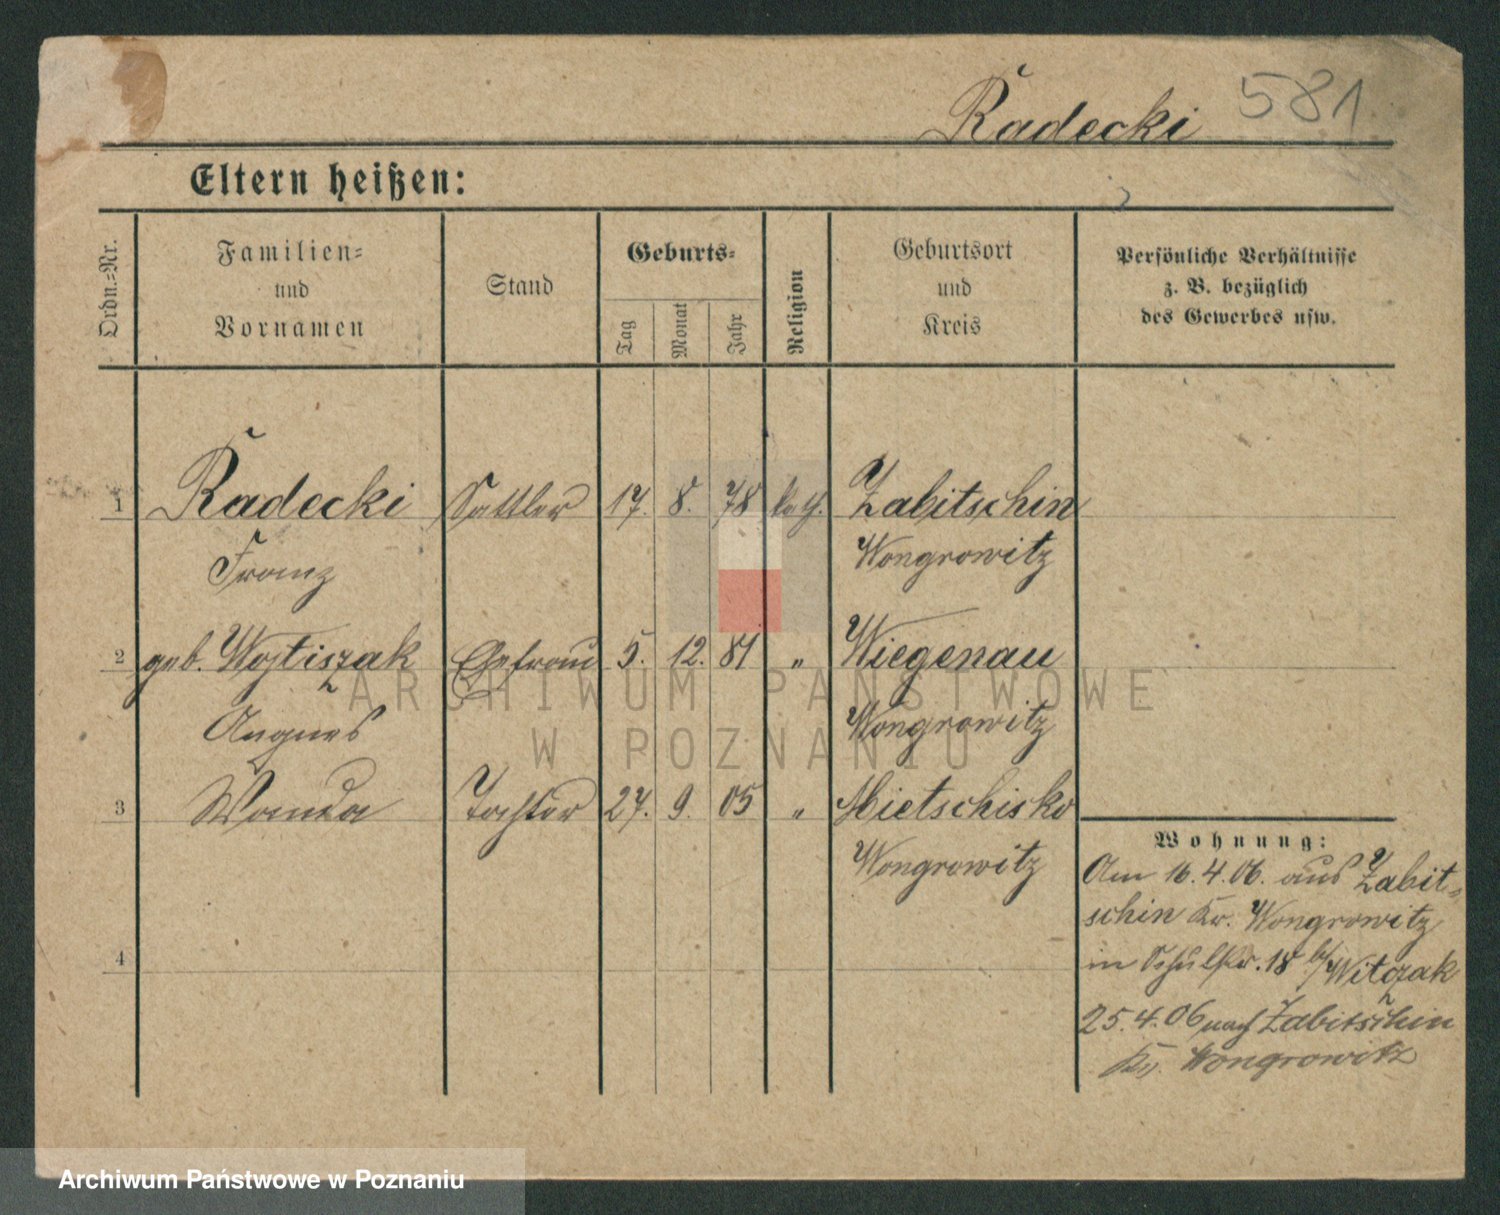 Radecki 581
Eltern heißen:
Ordn.-Nr.
Familien-
und
Vornamen
Stand
Geburts-
Tag
Monat
Jahr
Religion
Geburtsort
und
Kreis
Persönliche Verhältnisse
z. B. bezüglich
des Gewerbes usw.
1 Radecki Sattler 17. 8. 78 kath. Zabitschin
Franz Wongrowitz
2 geb. Wojtiszak Ehefrau 5. 12. 81 " Wiegenau
Angnes Wongrowitz
3 Wanda Tochter 27. 9. 05 " Mietschisko
Wongrowitz
4
Wohnung:
Am 16.4.06. aus Zabit-
schin Kr. Wongrowitz
in Schulstr. 18 b/ Witczak
25.4.06 nach Zabitschin
Kr. Wongrowitz
ARCHIWUM PAŃSTWOWE
W POZNANIU
Archiwum Państwowe w Poznaniu